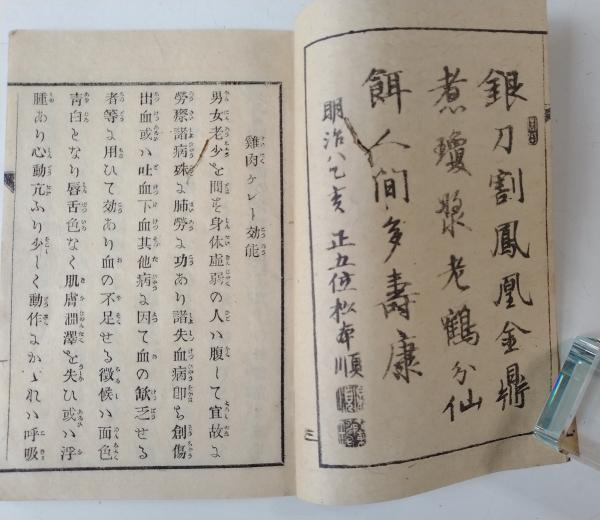 銀刀割鳳凰金鼎
煮瓊漿老鶴分仙
餌人間多壽康
明治八乙亥 正五位松本順
雞肉ケレー効能
男女老少を問す身体虚弱の人ハ腹して宜故に
勞瘵諸病殊に肺勞に功あり諸失血病即ち創傷
出血或ハ吐血下血其他病に因て血の缺乏せる
者等に用ひて効あり血の不足せる徴候ハ面色
靑白となり唇舌色なく肌膚潤澤を失ひ或ハ浮
腫あり心動亢ふり少しく動作にかゝれハ呼吸
三